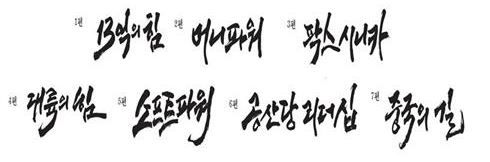 1편 13억의 힘 2편 머니파워 3편 팍스 시니카
4편 대륙의 힘 5편 소프트파워 6편 공산당 리더십 7편 중국의 길